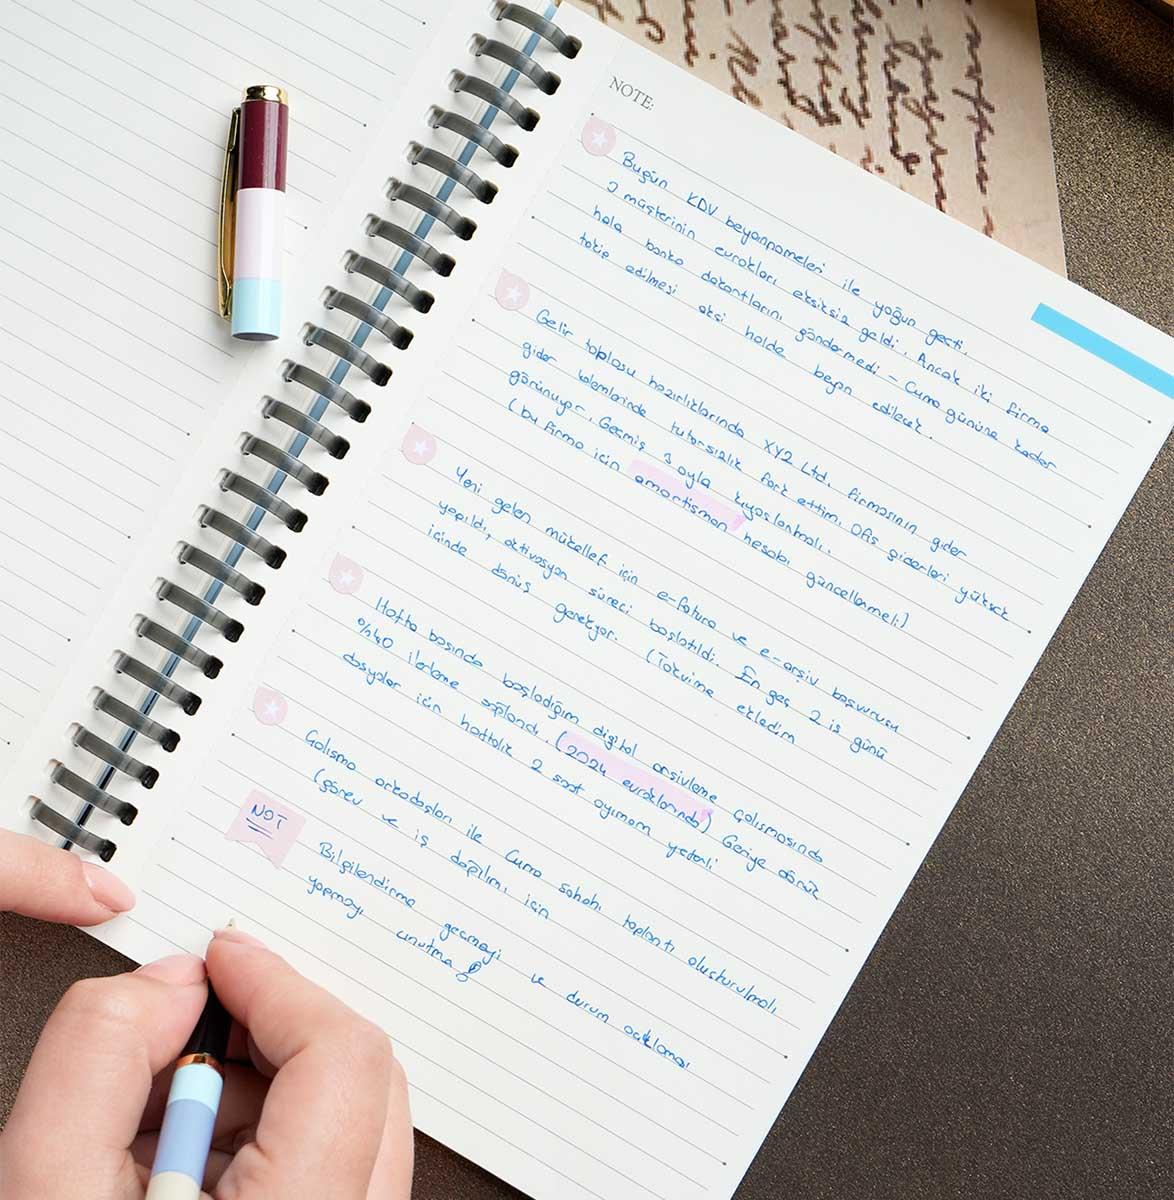 NOTE:
Bugün KDV beyannameleri ile yoğun geçti.
2 müşterinin evrakları eksiksiz geldi. Ancak iki firma
hala banka dekontlarını göndermedi - Cuma gününe kadar
takip edilmesi aksi halde beyan edilecek.
Gelir tablosu hazırlıklarında XYZ Ltd. firmasının gider
gider kalemlerinde tutarsızlık fark ettim. Ofis giderleri yüksek
görünüyor. Geçmiş 3 ayla kıyaslanmalı.
(bu firma için amortisman hesabı güncellenmeli)
Yeni gelen mükellef için e-fatura ve e-arşiv başvurusu
yapıldı, aktivasyon süreci başlatıldı. En geç 2 iş günü
içinde dönüş gerekiyor. (Takvime ekledim
Hafta başında başladığım digital arşivleme çalışmasında
%40 ilerleme sağlandı. (2024 evraklarında) Geriye dönük
dosyalar için haftalık 2 saat ayırmam yeterli
Çalışma arkadaşları ile Cuma sabahı toplantı oluşturulmalı,
(görev ve iş dağılımı için
NOT
Bilgilendirme geçmeyi ve durum açıklaması
yapmayı unutma